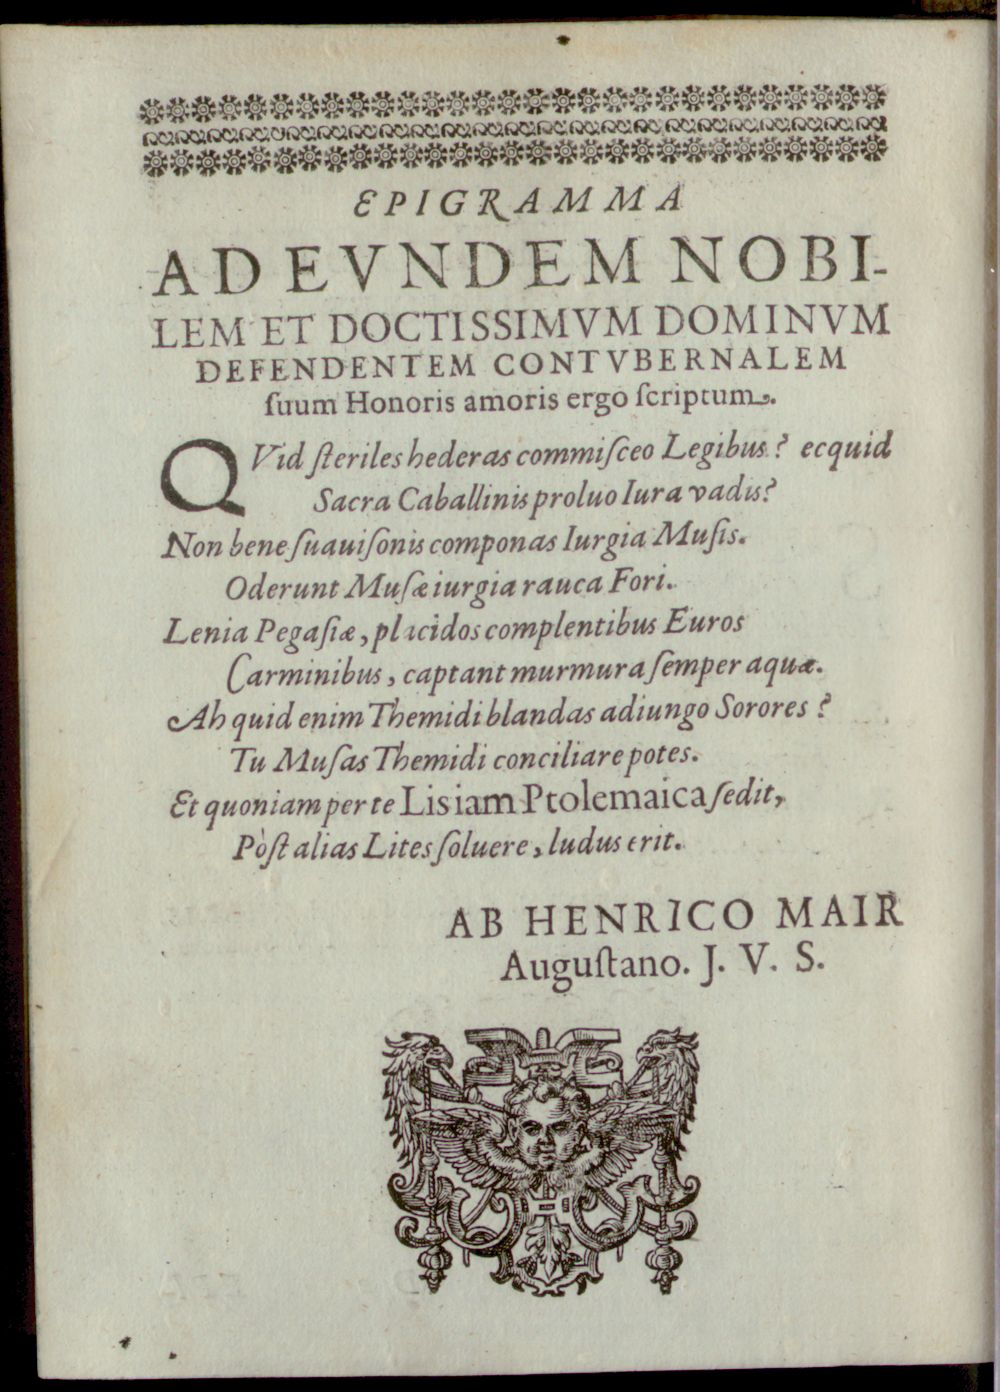 EPIGRAMMA
AD EVNDEM NOBI-
LEM ET DOCTISSIMVM DOMINVM
DEFENDENTEM CONTVBERNALEM
ſuum Honoris amoris ergo ſcriptum.
QVid ſteriles hederas commiſceo Legibus? ecquid
Sacra Caballinis proluo Iura vadis?
Non bene ſuauiſonis componas Iurgia Muſis.
Oderunt Muſæ iurgia rauca Fori.
Lenia Pegaſiæ, placidos complentibus Euros
Carminibus, captant murmura ſemper aquæ.
Ah quid enim Themidi blandas adiungo Sorores?
Tu Muſas Themidi conciliare potes.
Et quoniam per te Lis iam Ptolemaica ſedit,
Pòſt alias Lites ſoluere, ludus erit.
AB HENRICO MAIR
Auguſtano. J. V. S.